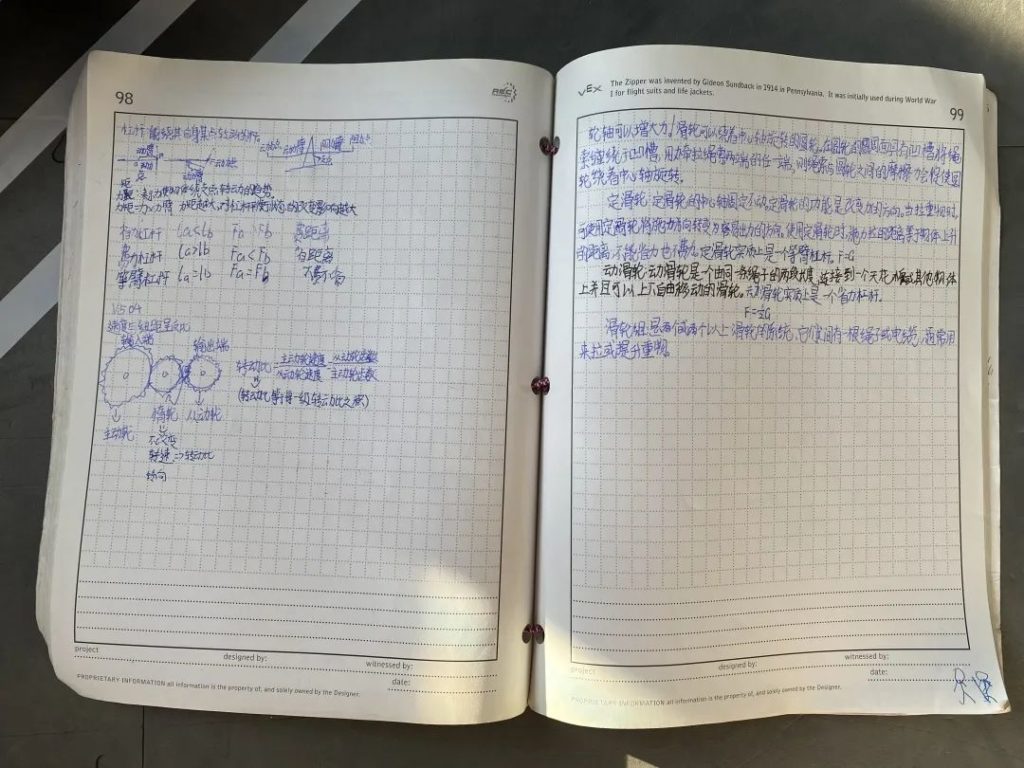 98
REC
杠杆:能绕其自身某点转动的杆
力矩=力×力臂
La<Lb Fa>Fb 费距离
La>Lb Fa<Fb 省距离
等臂杠杆 la=lb Fa=Fb
输入端 输出端
转动比=主动轮速度 从动轮齿数
从动轮速度 主动轮齿数
(转动比等于每一级转动比之积)
主动轮 惰轮 从动轮
不改变
转速=>转动比
转向
project
designed by:
witnessed by:
date:
PROPRIETARY INFORMATION all information is the property of, and solely owned by the Designer.
VEX
The Zipper was invented by Gideon Sundback in 1914 in Pennsylvania. It was initially used during World War
I for flight suits and life jackets.
99
轮轴可以增大力。滑轮可以绕着中心轴旋转的圆轮。在圆轮的圆周面间有凹槽将绳
索缠绕于凹槽,用力牵拉绳索两端的任一端,则绳索与圆轮之间的摩擦力会促使圆
轮绕着中心轴旋转。
定滑轮:定滑轮的中心轴固定不动定滑轮的功能是改变力的方向。当拉重物时,
可使用定滑轮将施力方向转变为容易出力的方向。使用定滑轮时,施力拉的距离等于物体上升
的距离,不能省力也不费力。定滑轮实质上是一个等臂杠杆。F=G
动滑轮:动滑轮是一个由同一条绳子的两段长度,连接到一个天花板或其他物体
上并且可以上下自由移动的滑轮。动滑轮实质上是一个省力杠杆。
F=½G
滑轮组:是有同两个以上滑轮的系统,它们之间有一根绳子或电缆,通常用
来拉或提升重物。
project
designed by:
witnessed by:
date:
PROPRIETARY INFORMATION all information is the property of, and solely owned by the Designer.